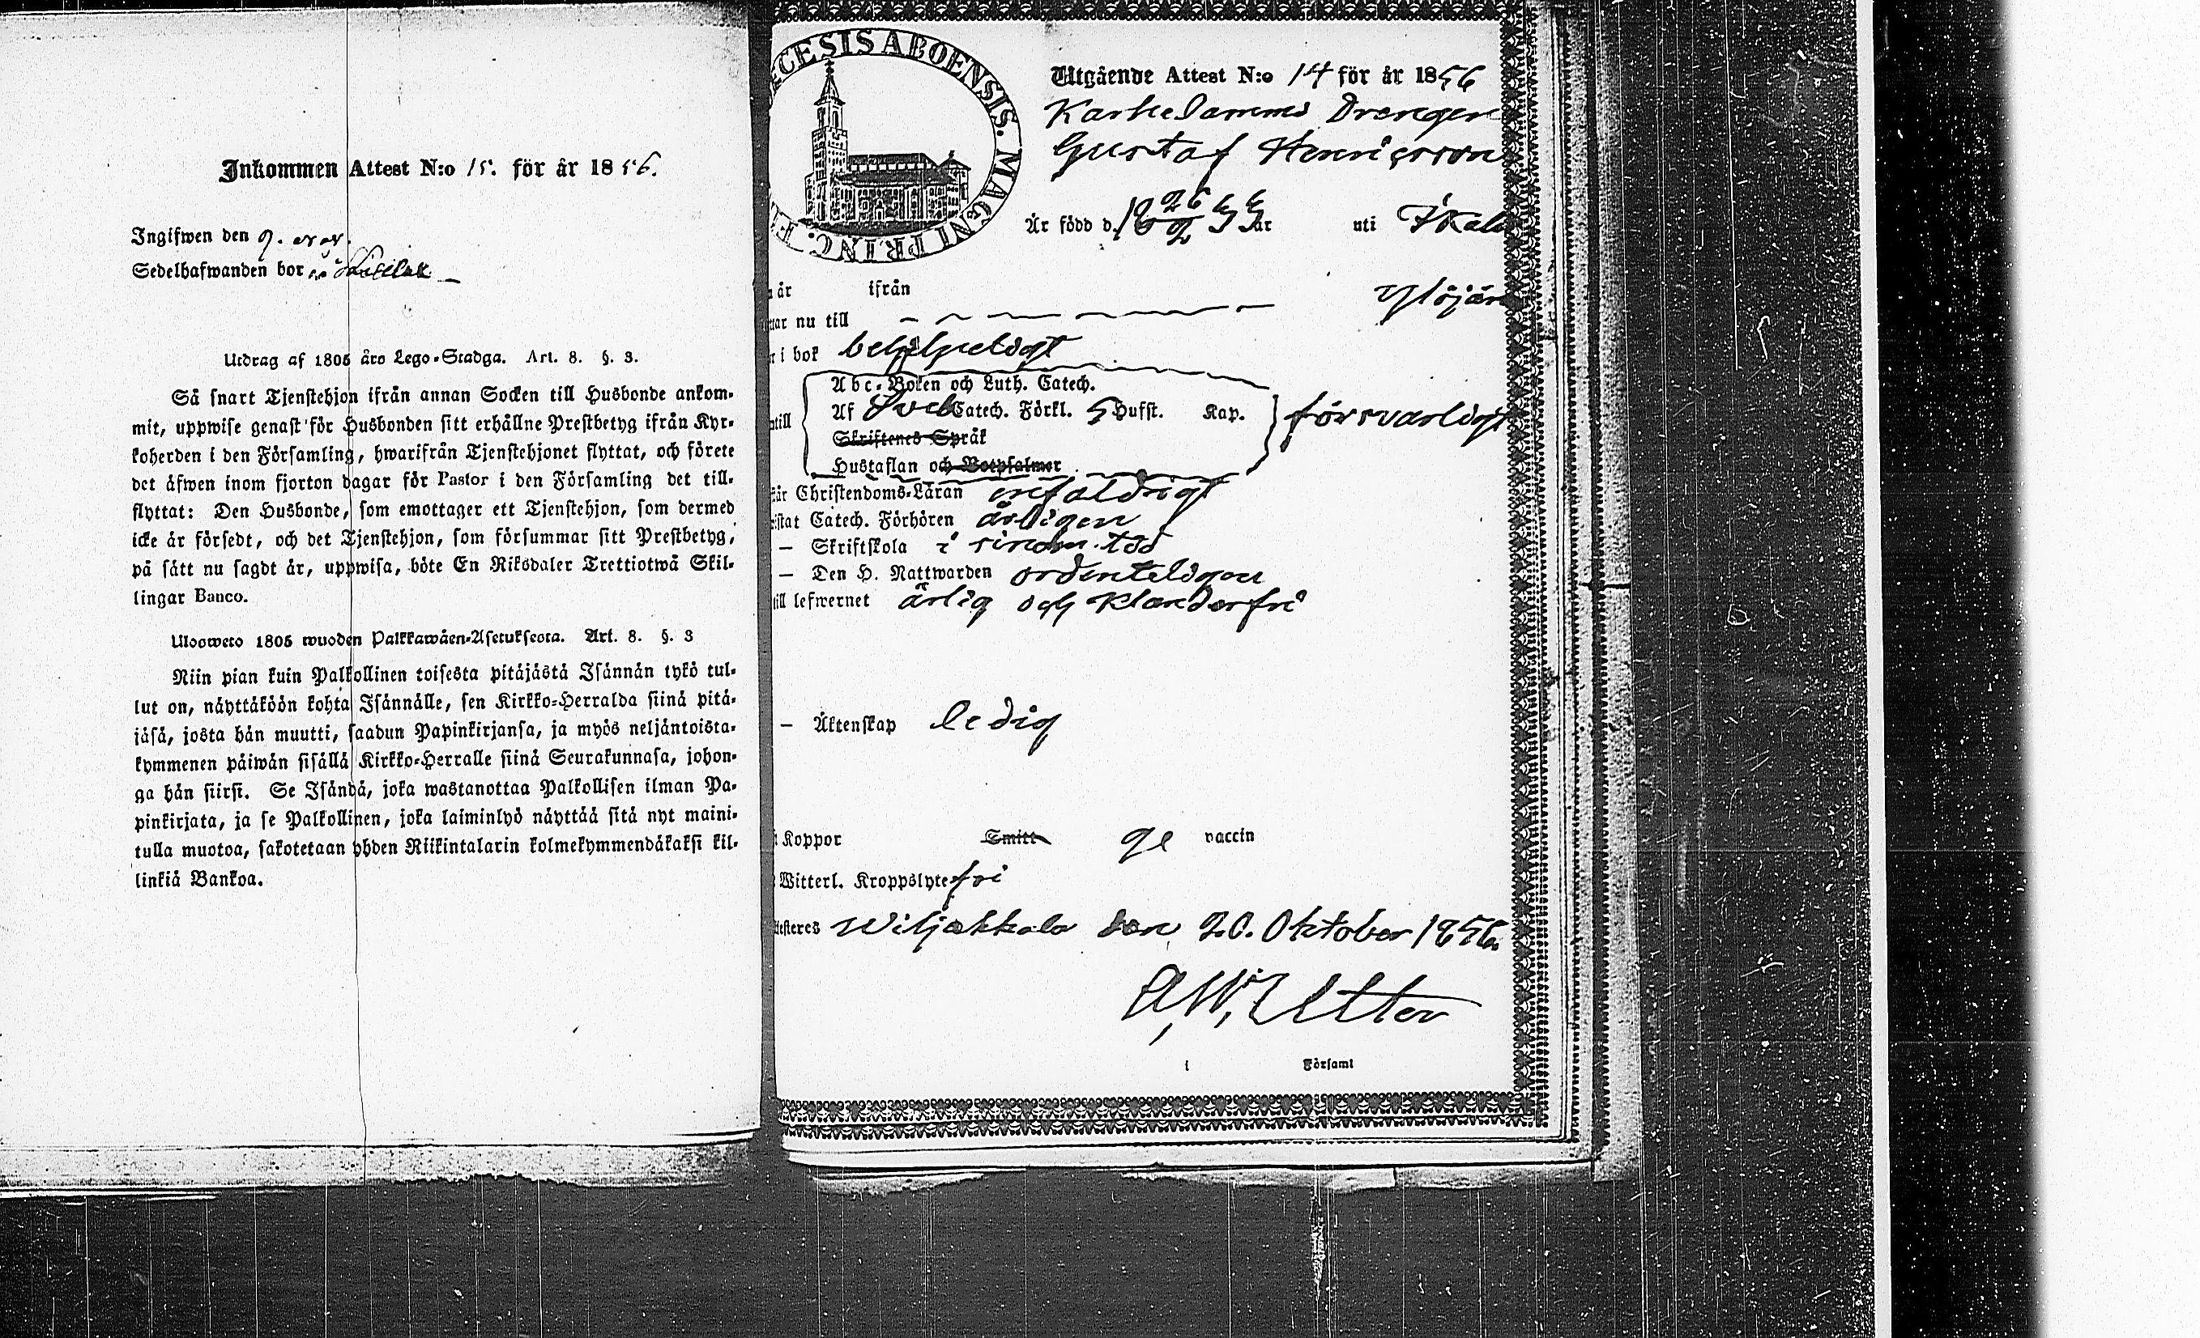 Inkommen Attest N:o 15. för år 1856.
Ingifwen den 9. nov.
Sedelhafwanden bor
Utdrag af 1805 års Lego-Stadga. Art. 8. §. 3.
Så snart Tjenstehjon ifrån annan Socken till Husbonde ankom-
mit, uppwise genast för Husbonden sitt erhållne Prestbetyg ifrån Kyr-
koherden i den Församling, hwarifrån Tjenstehjonet flyttat, och förete
det åfwen inom fjorton dagar för Pastor i den Församling det till-
flyttat: Den Husbonde, som emottager ett Tjenstehjon, som dermed
icke är försedt, och det Tjenstehjon, som försummar sitt Prestbetyg,
på sätt nu sagdt är, uppwisa, böte En Riksdaler Trettiotwå Skil-
lingar Banco.
Ulosweto 1805 wuoden Palkkawäen-Asetuksesta. Art. 8. §. 3
Niin pian kuin Palkollinen toisesta pitäjästä Isännän tykö tul-
lut on, näyttäköön kohta Isännälle, sen Kirkko-Herralda siinä pitä-
jäsä, josta hän muutti, saadun Papinkirjansa, ja myös neljäntoista-
kymmenen päiwän sisällä Kirkko-Herralle siinä Seurakunnasa, johon-
ga hän siirsi. Se Isändä, joka wastanottaa Palkollisen ilman Pa-
pinkirjata, ja se Palkollinen, joka laiminlyö näyttää sitä nyt maini-
tulla muotoa, sakotetaan yhden Riikintalarin kolmekymmendäkaksi kil-
linkiä Bankoa.
CESIS ABOENSIS. MAGNI PRINC. F
Utgående Attest N:o 14 för år 1856
Drengen
Gustaf Henricsson
År född d. 18 26/2 33 år uti Ikal
år ifrån
ar nu till Ylöjär
i bok behjelpeligt
Abc-Boken och Luth. Catech.
Af Sveb Catech. Förkl. 5 Hufst. Kap. försvarligt
Skriftenes Språk
Hustaflan och Botpsalmer
är Christendoms-Läran enfaldigt
istat Catech. Förhören årligen
— Skriftskola i sinom tid
— Den H. Nattwarden ordenteligen
till lefwernet ärlig och klanderfri
— Äktenskap ledig
Koppor Smitt ge vaccin
Witterl. Kroppslyte fri
testeres Wiljakkala den 20. Oktober 1856.
A. W. Utter
i Församl